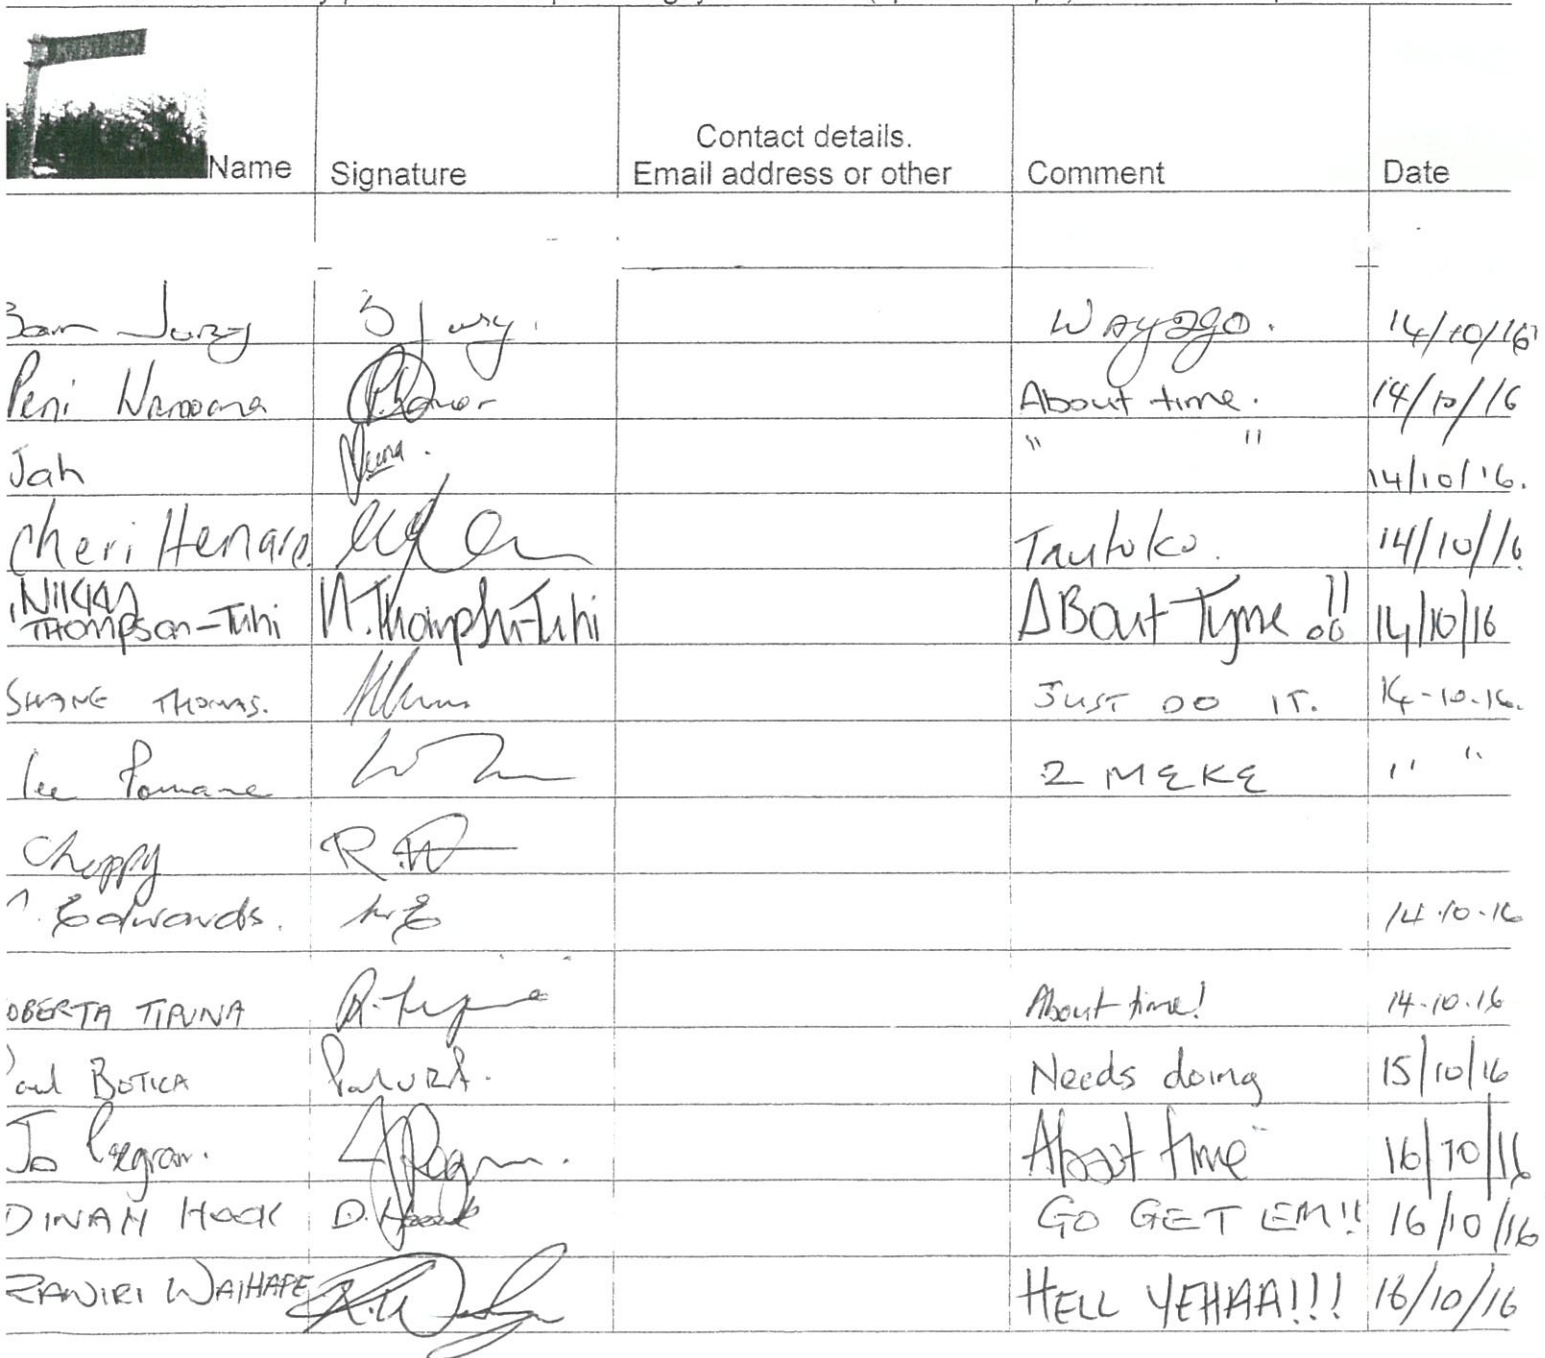 Name Signature Contact details. Email address or other Comment Date
Sam Jury S Jury. Way 2 go. 14/10/16
Peni About time. 14/10/16
Jah " " 14/10/16.
Cheri Henare Tautoko. 14/10/16
Nikky Thompson-Tuhi N. Thompson-Tuhi ABout Tyme !! 14/10/16
SHANE THOMAS. JUST DO IT. 14-10-16.
Lee Pomare 2 MEKE " "
Choppy
Edwards. 14.10.16
OBERTA TIPUNA R. About time! 14.10.16
aul BOTICA Needs doing 15/10/16
Jo Pegram. About time 16/10/16
DINAH HOOK D. Hook GO GET EM!! 16/10/16
RAWIRI WAIHAPE HELL YEHAA!!! 16/10/16